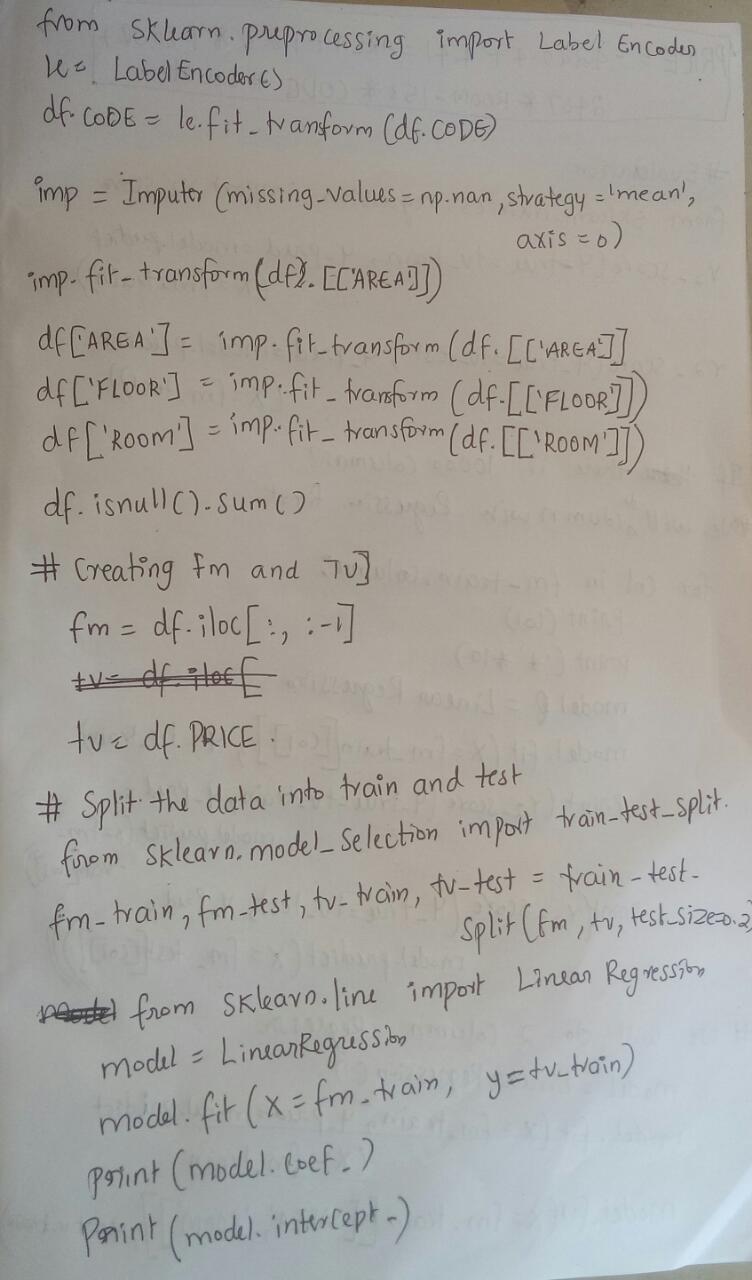 from sklearn.preprocessing import Label Encoder
le = LabelEncoder()
df.CODE = le.fit_transform (df.CODE)
imp = Imputer (missing_values = np.nan, strategy = 'mean',
axis = 0)
imp.fit_transform (df). [['AREA']])
df['AREA'] = imp.fit_transform (df.[['AREA']]
df['FLOOR'] = imp.fit_transform (df.[['FLOOR']])
df['ROOM'] = imp.fit_transform (df.[['ROOM']])
df.isnull().sum()
# Creating fm and TV]
fm = df.iloc[:, :-1]
tv = df.iloc[
tv = df.PRICE.
# Split the data into train and test
from sklearn.model_selection import train_test_split.
fm_train, fm_test, tv_train, tv_test = train_test_
split (fm, tv, test_size=0.2)
model from sklearn.line import Linear Regression
model = LinearRegression
model.fit (X = fm_train, y = tv_train)
print (model.coef_)
print (model.intercept_)